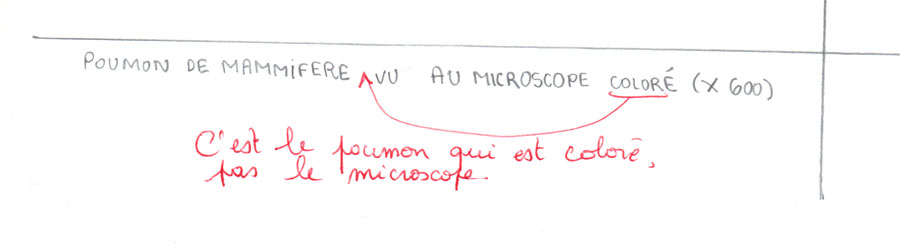 POUMON DE MAMMIFERE VU AU MICROSCOPE COLORÉ (X 600)
C'est le poumon qui est coloré,
pas le microscope.